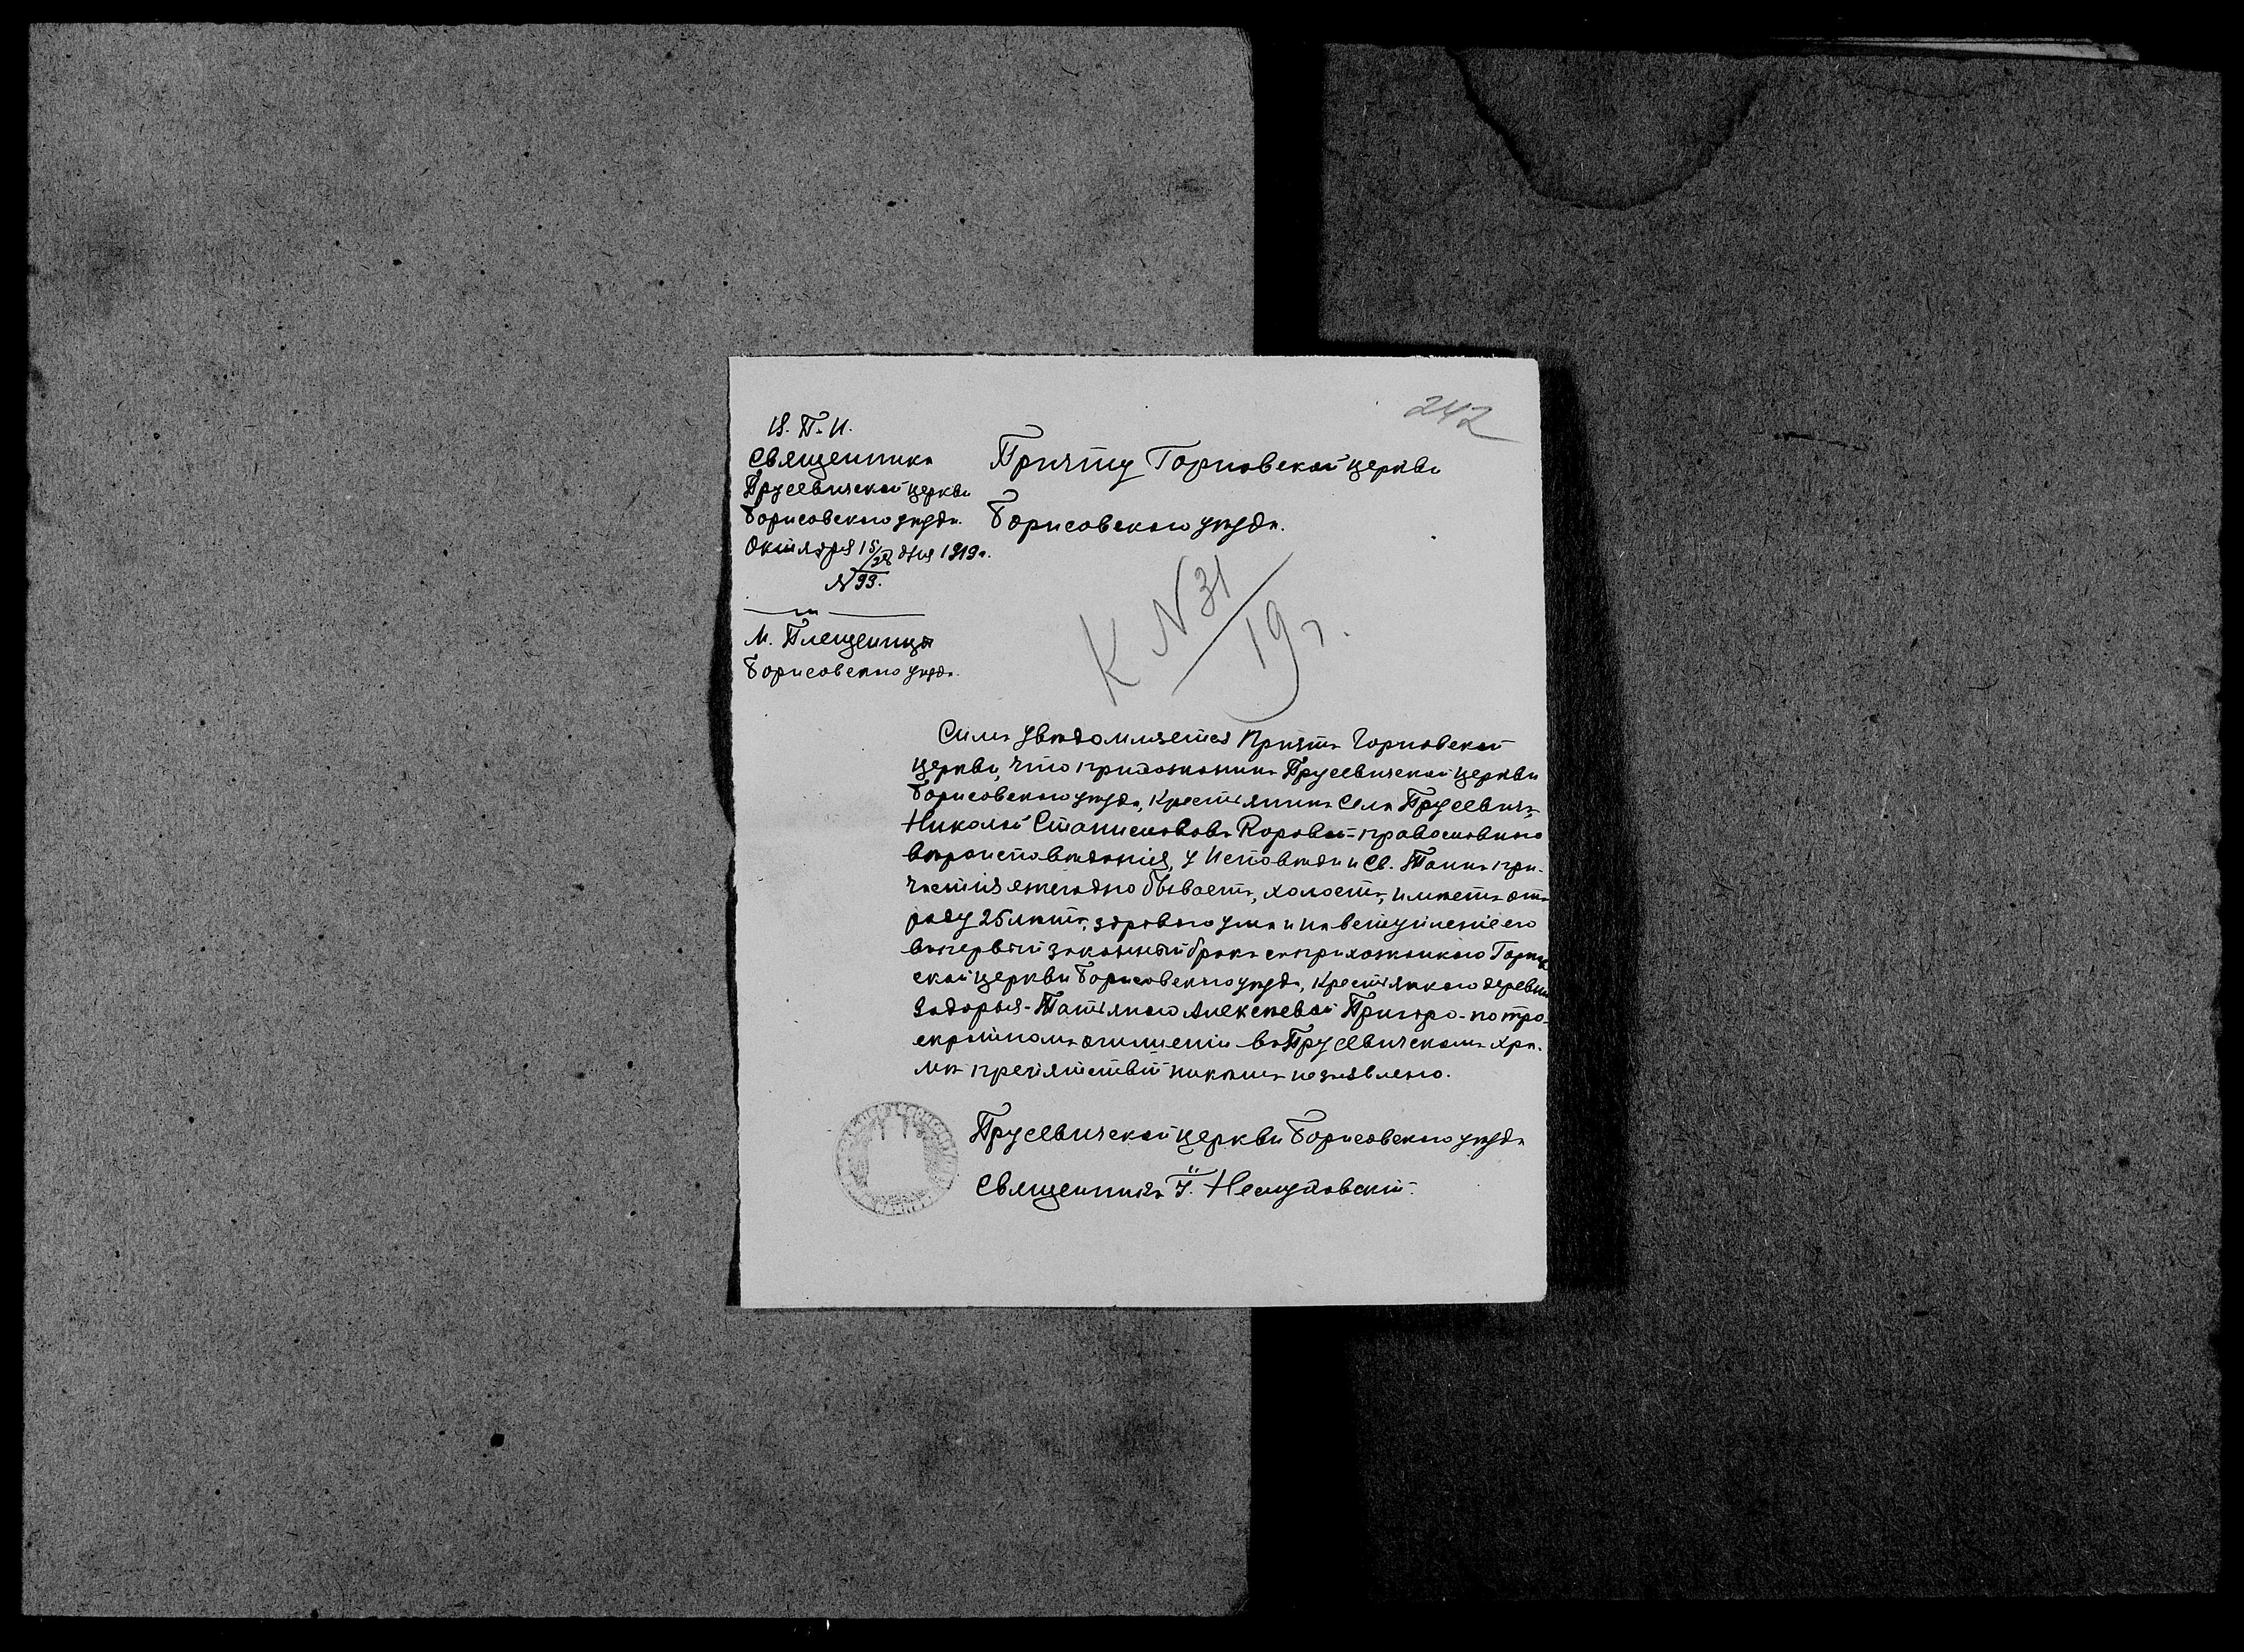 242
В. П. И.
Священника
Прусевичской церкви
Борисовского уѣзда.
Октября 15/28 дня 1919 г.
№ 99.
М. Плещеницы
Борисовскаго уѣзда.
Причту Горновской церкви
Борисовскаго уѣзда.
К № 31/19 г.
Симъ увѣдомляется Причтъ Горновской
церкви, что прихожанинъ Прусевичской церкви
Борисовскаго уѣзда, крестьянинъ села Прусевичъ,
Николай Станиславовъ Коровай - православнаго
вѣроисповѣданія, у Исповѣди и Св. Таинъ при-
частія ежегодно бываетъ, холостъ, имѣетъ отъ
роду 25 лѣтъ, здраваго ума и на вступленіе его
въ первый законный бракъ съ прихожанкою Горнов
ской церкви Борисовскаго уѣзда, крестьянкою деревни
Задорья - Татьяною Алексѣевой Пригодро - по тро-
екратномъ оглашеніи въ Прусевичскомъ хра-
мѣ препятствій никакихъ не заявлено.
Прусевичской церкви Борисовскаго уѣзда
Священникъ І.